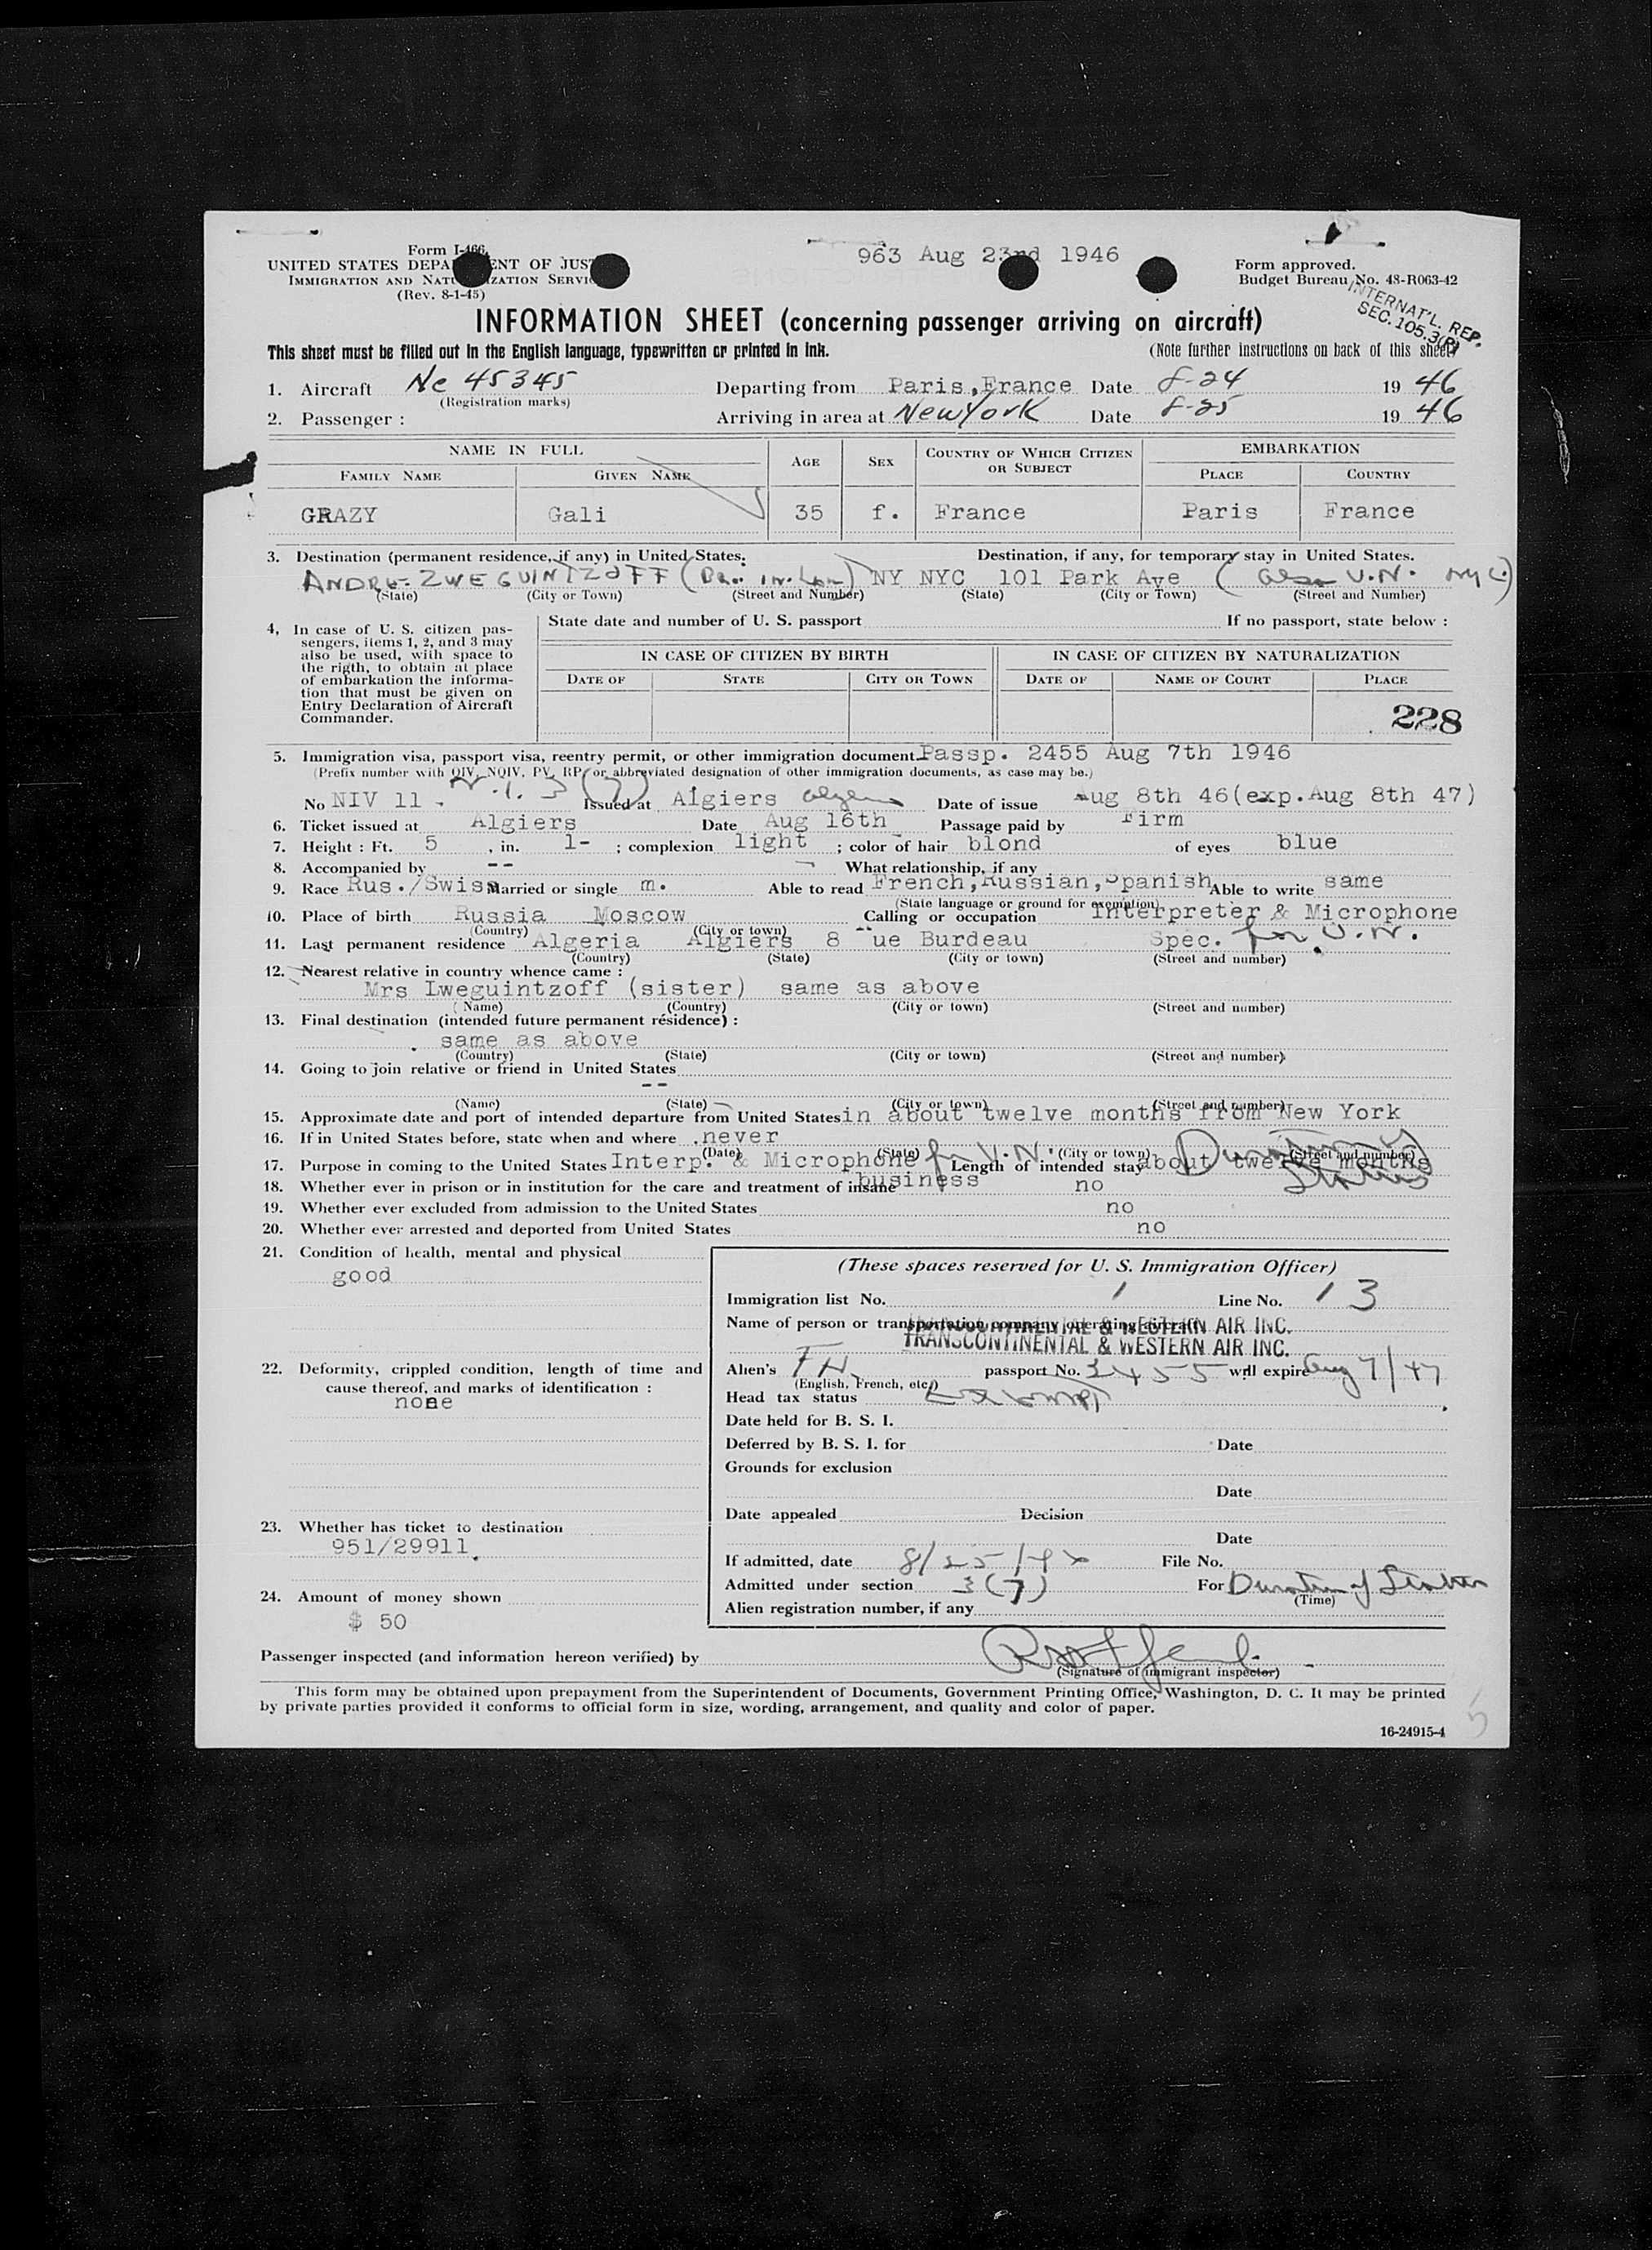 Form I-466
963 Aug 23rd 1946
UNITED STATES DEPA ENT OF JUS
IMMIGRATION AND NATU IZATION SERVI
(Rev. 8-1-45)
Form approved.
Budget Bureau No. 48-R063-42
INTERNAT'L. REP.
SEC. 105.3(R)
INFORMATION SHEET (concerning passenger arriving on aircraft)
This sheet must be filled out in the English language, typewritten or printed in ink. (Note further instructions on back of this sheet)
1. Aircraft Nc 45345 Departing from Paris, France Date 8-24 1946
(Registration marks)
2. Passenger : Arriving in area at New York Date 8-25 1946
NAME IN FULL AGE SEX COUNTRY OF WHICH CITIZEN OR SUBJECT EMBARKATION
FAMILY NAME GIVEN NAME PLACE COUNTRY
GRAZY Gali 35 f. France Paris France
3. Destination (permanent residence, if any) in United States. Destination, if any, for temporary stay in United States.
ANDRE ZWEGUINTZOFF (Bro. in. Law) NY NYC 101 Park Ave (also U.N. NYC.)
(State) (City or Town) (Street and Number) (State) (City or Town) (Street and Number)
4. In case of U. S. citizen pas-
sengers, items 1, 2, and 3 may
also be used, with space to
the rigth, to obtain at place
of embarkation the informa-
tion that must be given on
Entry Declaration of Aircraft
Commander.
State date and number of U. S. passport If no passport, state below :
IN CASE OF CITIZEN BY BIRTH IN CASE OF CITIZEN BY NATURALIZATION
DATE OF STATE CITY OR TOWN DATE OF NAME OF COURT PLACE
228
5. Immigration visa, passport visa, reentry permit, or other immigration document. Passp. 2455 Aug 7th 1946
(Prefix number with QIV, NQIV, PV, RP, or abbreviated designation of other immigration documents, as case may be.)
No NIV 11 3 (7) Issued at Algiers Date of issue Aug 8th 46(exp.Aug 8th 47)
6. Ticket issued at Algiers Date Aug 16th Passage paid by Firm
7. Height : Ft. 5 , in. 1- ; complexion light ; color of hair blond of eyes blue
8. Accompanied by -- What relationship, if any
9. Race Rus./Swiss Married or single m. Able to read French,Russian,Spanish Able to write same
(State language or ground for exemption)
10. Place of birth Russia Moscow Calling or occupation Interpreter & Microphone
(Country) (City or town)
11. Last permanent residence Algeria Algiers 8 ue Burdeau Spec. for U.N.
(Country) (State) (City or town) (Street and number)
12. Nearest relative in country whence came :
Mrs Iweguintzoff (sister) same as above
(Name) (Country) (City or town) (Street and number)
13. Final destination (intended future permanent résidence) :
same as above
(Country) (State) (City or town) (Street and number)
14. Going to join relative or friend in United States
--
(Name) (State) (City or town) (Street and number)
15. Approximate date and port of intended departure from United States in about twelve months from New York
16. If in United States before, state when and where never
(Date) (State) (City or town) (Street and number)
17. Purpose in coming to the United States Interp. & Microphone for U.N. Length of intended stay about twelve months
business Duration Status
18. Whether ever in prison or in institution for the care and treatment of insane no
19. Whether ever excluded from admission to the United States no
20. Whether ever arrested and deported from United States no
21. Condition of health, mental and physical
good
22. Deformity, crippled condition, length of time and
cause thereof, and marks of identification :
none
23. Whether has ticket to destination
951/29911
24. Amount of money shown
$ 50
(These spaces reserved for U. S. Immigration Officer)
Immigration list No. 1 Line No. 13
Name of person or transportation company operating aircraft
TRANSCONTINENTAL & WESTERN AIR INC.
TRANSCONTINENTAL & WESTERN AIR INC.
Alien's FH passport No. 2455 will expire Aug 7/47
(English, French, etc.)
Head tax status Exempt
Date held for B. S. I.
Deferred by B. S. I. for Date
Grounds for exclusion
Date
Date appealed Decision
Date
If admitted, date 8/25/46 File No.
Admitted under section 3(7) For Duration of Status
(Time)
Alien registration number, if any
Passenger inspected (and information hereon verified) by
(Signature of immigrant inspector)
This form may be obtained upon prepayment from the Superintendent of Documents, Government Printing Office, Washington, D. C. It may be printed
by private parties provided it conforms to official form in size, wording, arrangement, and quality and color of paper.
16-24915-4